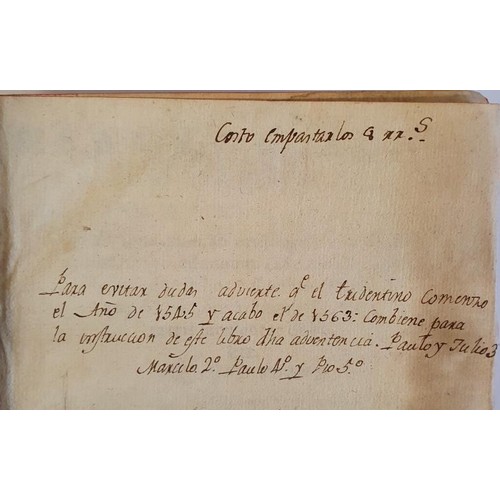 Costo empastarlos 8 rr.s
Para evitar dudas advierte q.e el tridentino comenzo
el Año de 1545 y acabo el de 1563: Combiene para
la instruccion de este libro dha advertencia. Paulo y Julio 3
Marcelo 2.o Paulo 4.o y Pio 5.o